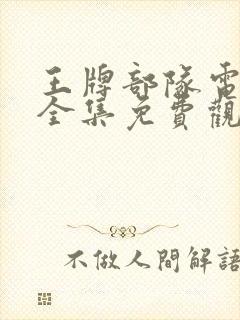 王牌部隊電
全集免費觀
不做人間解語